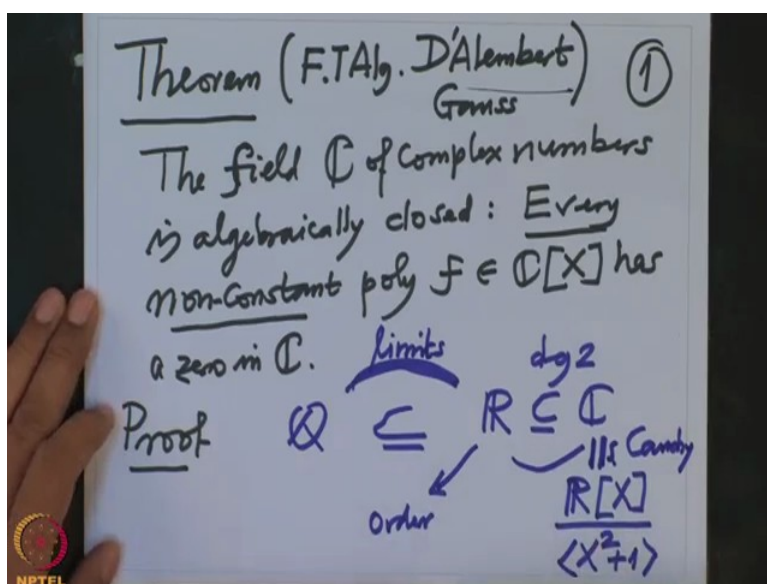 Theorem (F.TAlg. D'Alembert) ①
Gauss
The field ℂ of complex numbers
is algebraically closed: Every
non-constant poly f ∈ ℂ[X] has
a zero in ℂ.
limits
deg 2
Proof ℚ ⊆ ℝ ⊆ ℂ
Cauchy
order
ℝ[X]
⟨X²+1⟩
NPTEL